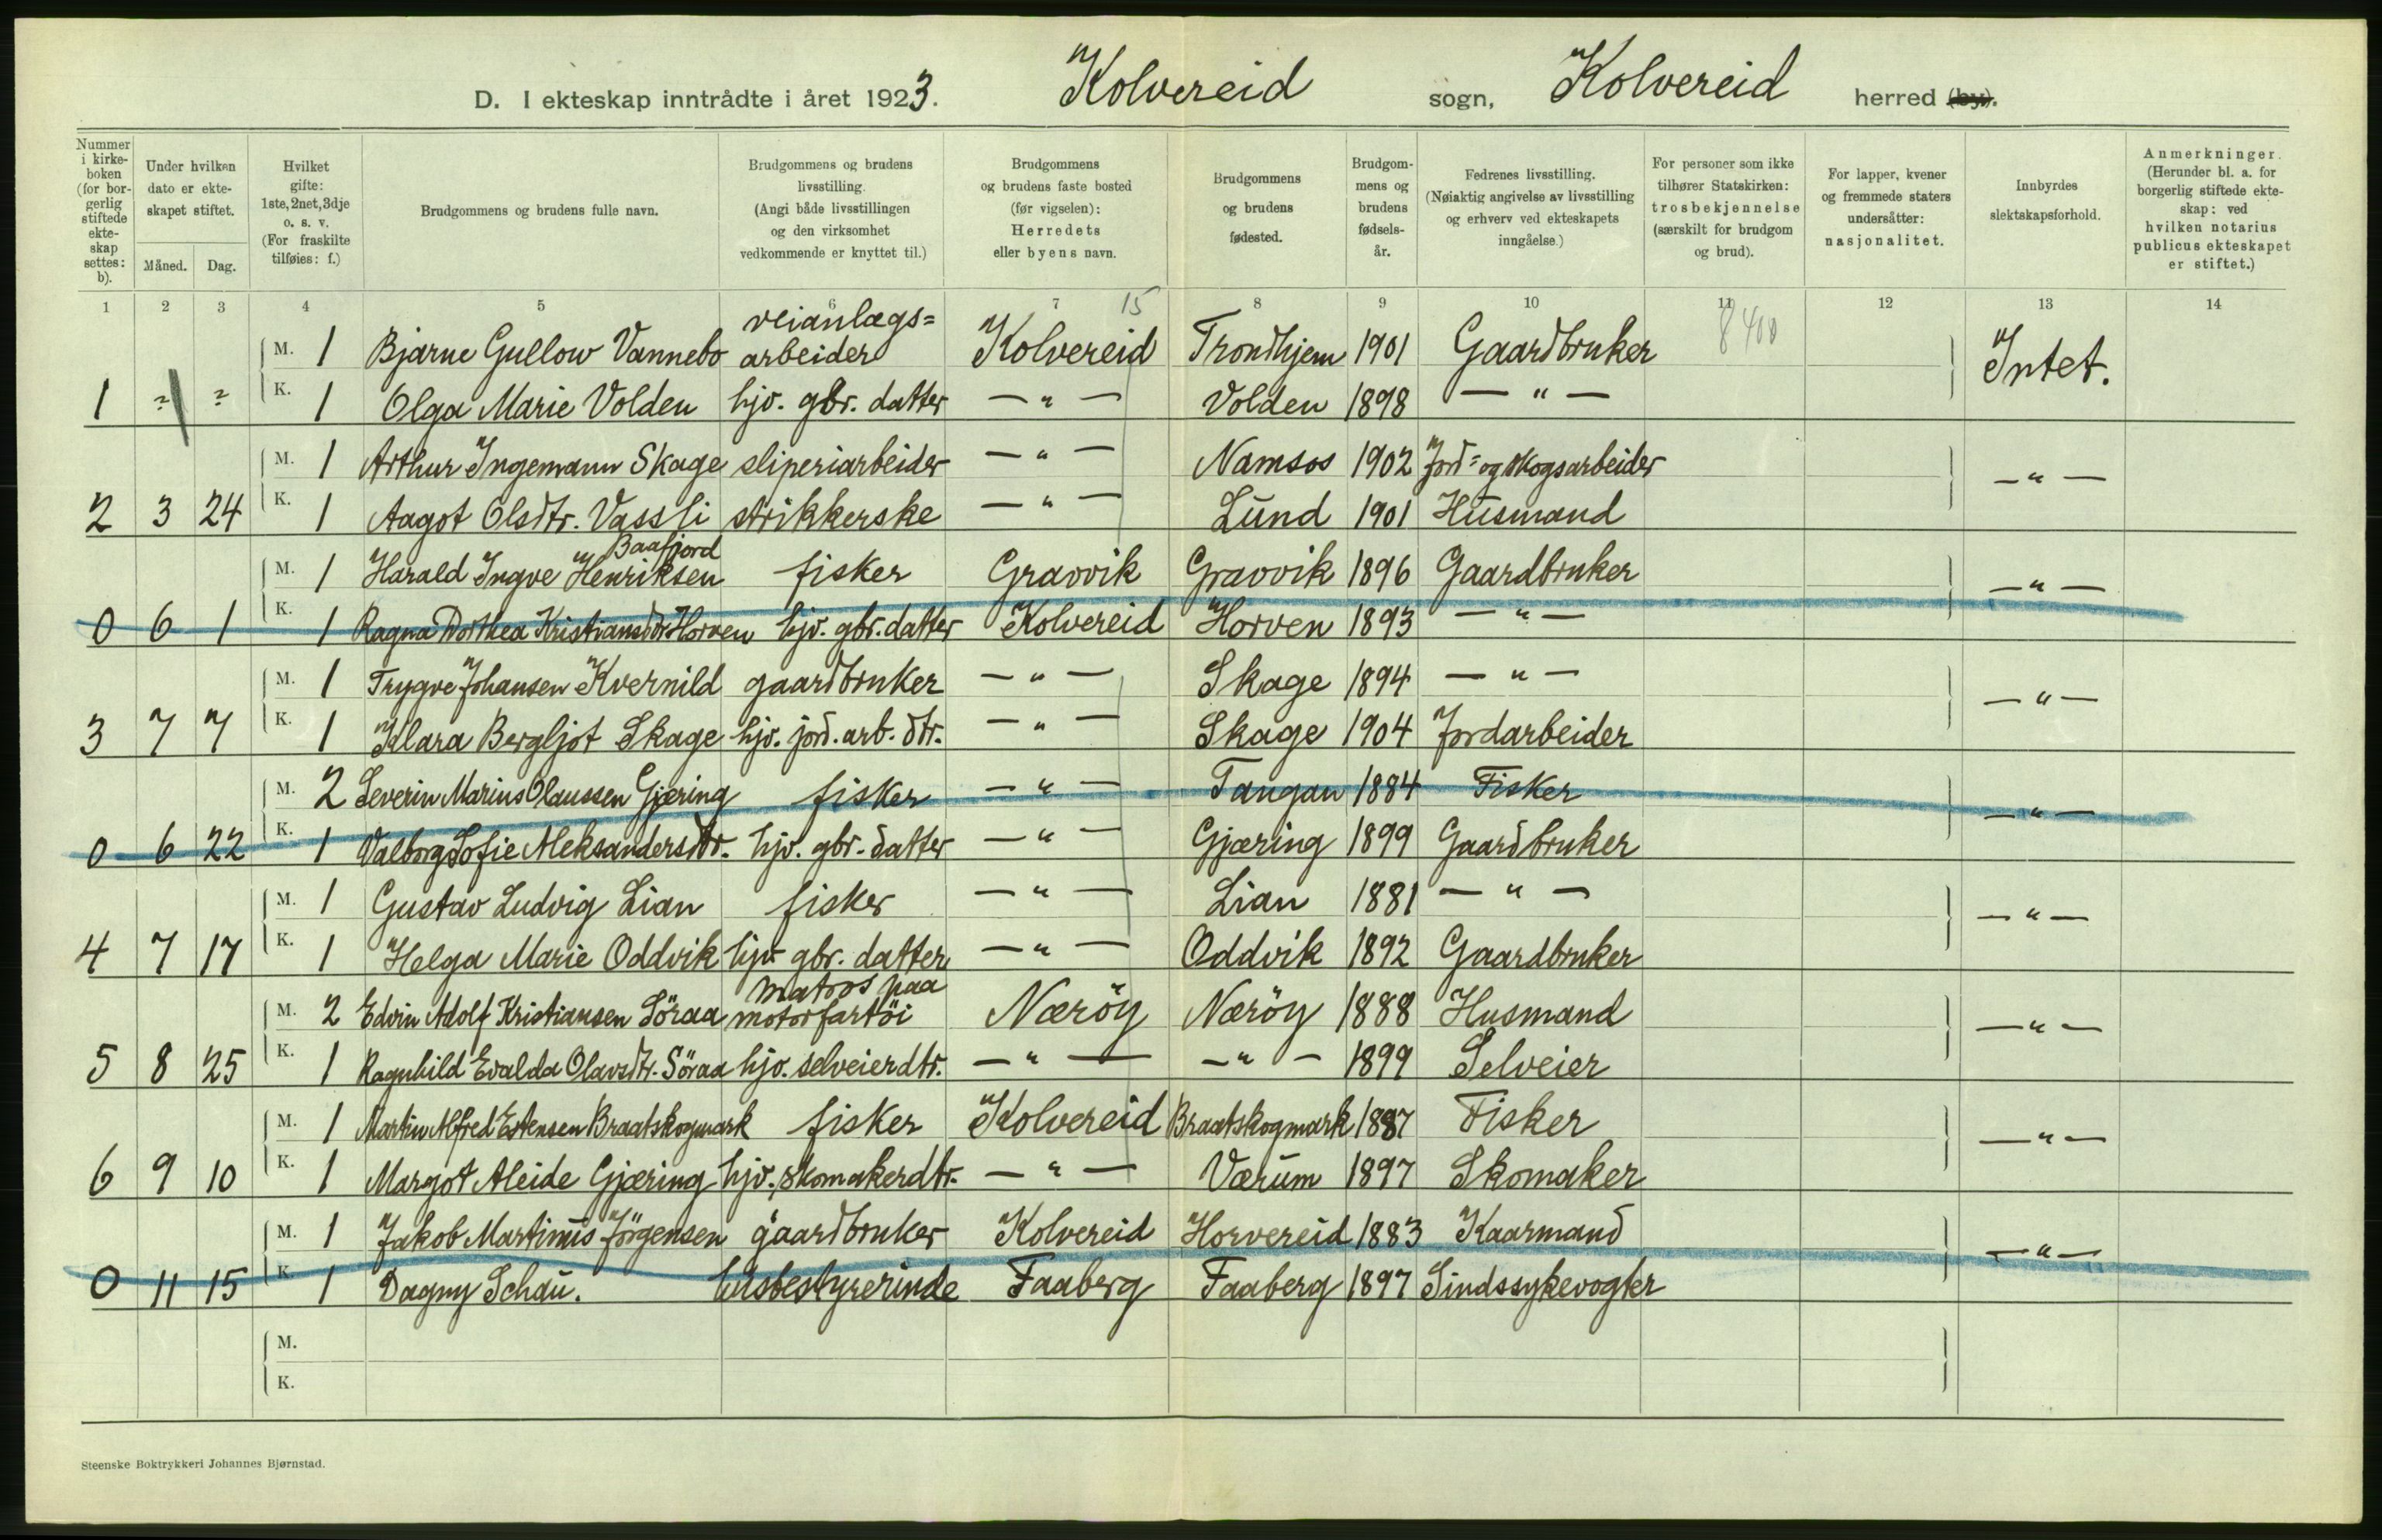 D. I ekteskap inntrådte i året 1923. Kolvereid sogn, Kolvereid herred (by).
Nummer i kirke-boken (for bor-gerlig stiftede ekte-skap settes: b).
Under hvilken dato er ekte-skapet stiftet.
Måned. Dag.
Hvilket gifte: 1ste, 2net, 3dje o. s. v. (For fraskilte tilføies: f.)
Brudgommens og brudens fulle navn.
Brudgommens og brudens livsstilling. (Angi både livsstillingen og den virksomhet vedkommende er knyttet til.)
Brudgommens og brudens faste bosted (før vigselen): Herredets eller byens navn.
Brudgommens og brudens fødested.
Brudgom-mens og brudens fødsels-år.
Fedrenes livsstilling. (Nøiaktig angivelse av livsstilling og erhverv ved ekteskapets inngåelse.)
For personer som ikke tilhører Statskirken: trosbekjennelse (særskilt for brudgom og brud).
For lapper, kvener og fremmede staters undersåtter: nasjonalitet.
Innbyrdes slektskapsforhold.
Anmerkninger. (Herunder bl. a. for borgerlig stiftede ekte-skap: ved hvilken notarius publicus ekteskapet er stiftet.)
1 2 3 4 5 6 7 15 8 9 10 11 12 13 14
M. 1 Bjarne Gullow Vannebo veianlægs=arbeider Kolvereid Trondhjem 1901 Gaardbruker 8400 Intet.
1 K. 1 Olga Marie Volden hjv. gbr. datter — " — Volden 1898 — " —
M. 1 Arthur Ingemann Skage sliperiarbeider — " — Namsos 1902 Jord= og skogsarbeider — " —
2 3 24 K. 1 Aagot Olsdtr. Vassli strikkerske — " — Lund 1901 Husmand
M. 1 Harald Ingve Henriksen Baafjord fisker Gravvik Gravvik 1896 Gaardbruker — " —
0 6 1 K. 1 Ragna Dorthea Kristiansdtr Horven hjv. gbr. datter Kolvereid Horven 1893 — " —
M. 1 Trygve Johansen Kvernild gaardbruker — " — Skage 1894 — " — — " —
3 7 7 K. 1 Klara Bergljot Skage hjv. jord. arb. dtr. — " — Skage 1904 Jordarbeider
M. 2 Severin Marius Olaussen Gjæring fisker — " — Tangan 1884 Fisker — " —
0 6 22 K. 1 Valborg Sofie Aleksandersdtr. hjv. gbr. datter — " — Gjæring 1899 Gaardbruker
M. 1 Gustav Ludvig Lian fisker — " — Lian 1881 — " — — " —
4 7 17 K. 1 Helga Marie Oddvik hjv. gbr. datter — " — Oddvik 1892 Gaardbruker
M. 2 Edvin Adolf Kristiansen Söraa matros paa motorfartöi Næröy Næröy 1888 Husmand — " —
5 8 25 K. 1 Ragnhild Evalda Olavsdtr. Söraa hjv. selveierdtr. — " — — " — 1899 Selveier
M. 1 Martin Alfred Estensen Braatskogmark fisker Kolvereid Braatskogmark 1887 Fisker — " —
6 9 10 K. 1 Margot Aleide Gjæring hjv. skomakerdtr. — " — Værum 1897 Skomaker
M. 1 Jakob Martinus Jörgensen gaardbruker Kolvereid Horvereid 1883 Kaarmand — " —
0 11 15 K 1 Dagny Schau. husbestyrerinde Faaberg Faaberg 1897 Sindssykevogter
M.
K.
Steenske Boktrykkeri Johannes Bjørnstad.